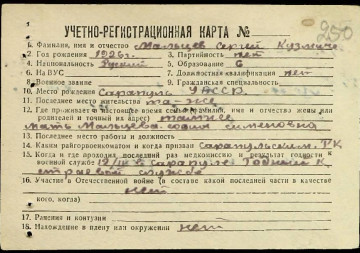 250
УЧЕТНО-РЕГИСТРАЦИОННАЯ КАРТА №
1. Фамилия, имя и отчество Мальцев Сергей Кузмич
2. Год рождения 1926 г. 3. Партийность нет
4. Национальность Русский 5. Образование 6
6. На ВУС 7. Должностная квалификация нет
8. Военное звание 9. Гражданская специальн.
10. Место рождения Сарапуль УАССР
11. Последнее место жительства та-же
12. Где проживает в настоящее время семья (фамилия, имя и отчество жены или
родителей и точный их адрес) там же
мать Мальцева Семеновна
13. Последнее место работы и должность
14. Каким райгорвоенкоматом и когда призван Сарапульским РК
15. Когда и где проходил последний раз медкомиссию и результат (годности к
военной службе) Сарапуле Годный к
строевой службе
16. Участие в Отечественной войне (в составе какой последней части в качестве
кого, когда) нет
17. Ранения и контузии
18. Нахождение в плену или окружении нет